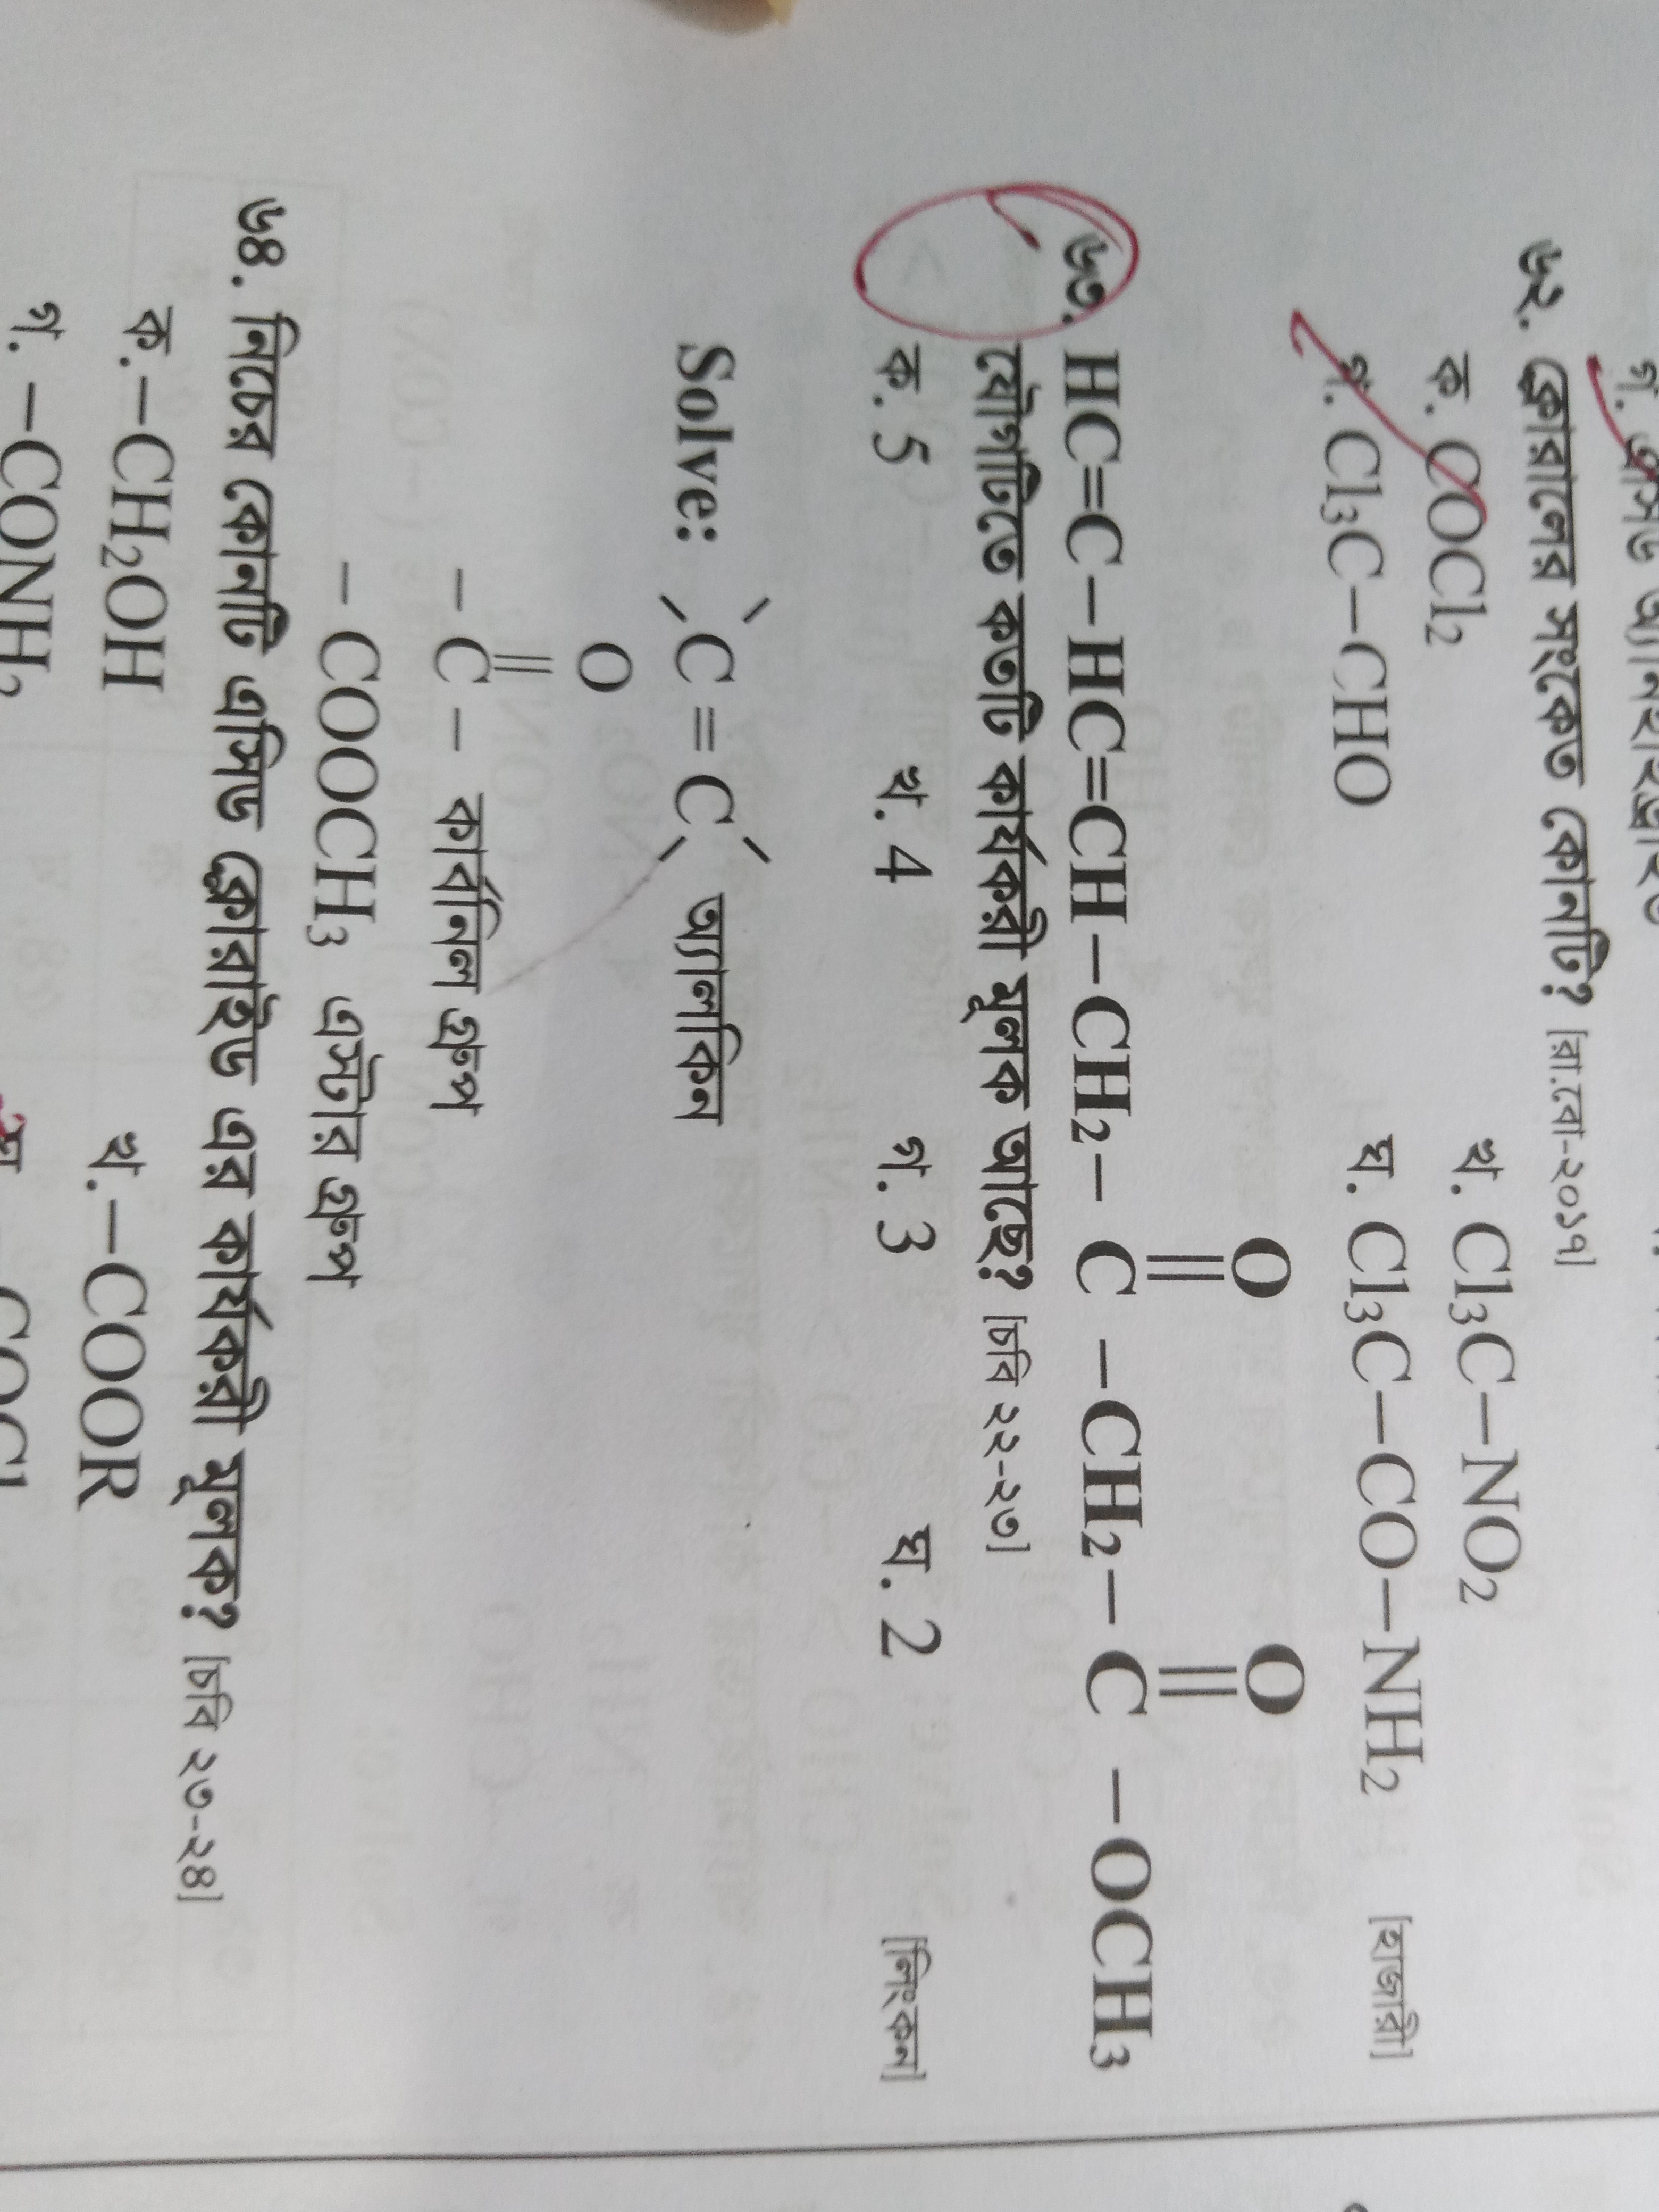 গ. এসিড অ্যানহাইড্রাইড
৬২. ক্লোরালের সংকেত কোনটি? [রা.বো-২০১৭]
ক. COCl₂ খ. Cl₃C–NO₂
গ. Cl₃C–CHO ঘ. Cl₃C–CO–NH₂ [হাজারী]
O O
|| ||
৬৩. HC=C–HC=CH–CH₂– C –CH₂– C –OCH₃
যৌগটিতে কতটি কার্যকরী মূলক আছে? [চবি ২২-২৩]
ক. 5 খ. 4 গ. 3 ঘ. 2 [লিংকন]
Solve: C = C অ্যালকিন
O
||
– C – কার্বনিল গ্রুপ
– COOCH₃ এস্টার গ্রুপ
৬৪. নিচের কোনটি এসিড ক্লোরাইড এর কার্যকরী মূলক? [চবি ২৩-২৪]
ক.–CH₂OH খ.–COOR
গ. –CONH₂